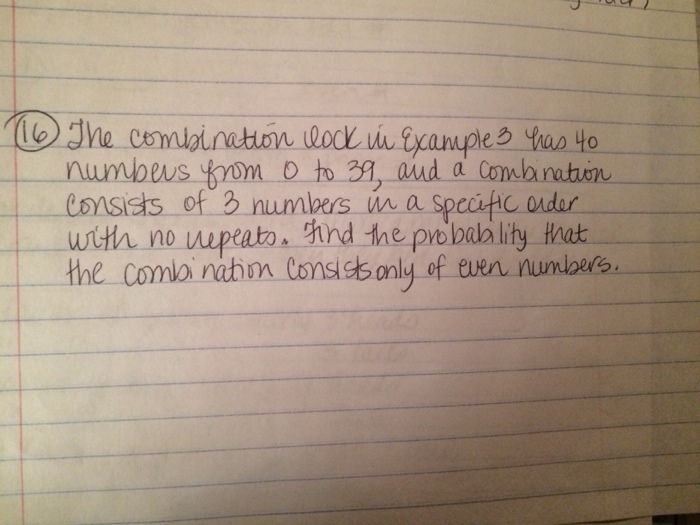 (16) The combination lock in Example 3 has 40
numbers from 0 to 39, and a combination
consists of 3 numbers in a specific order
with no repeats. Find the probability that
the combination consists only of even numbers.